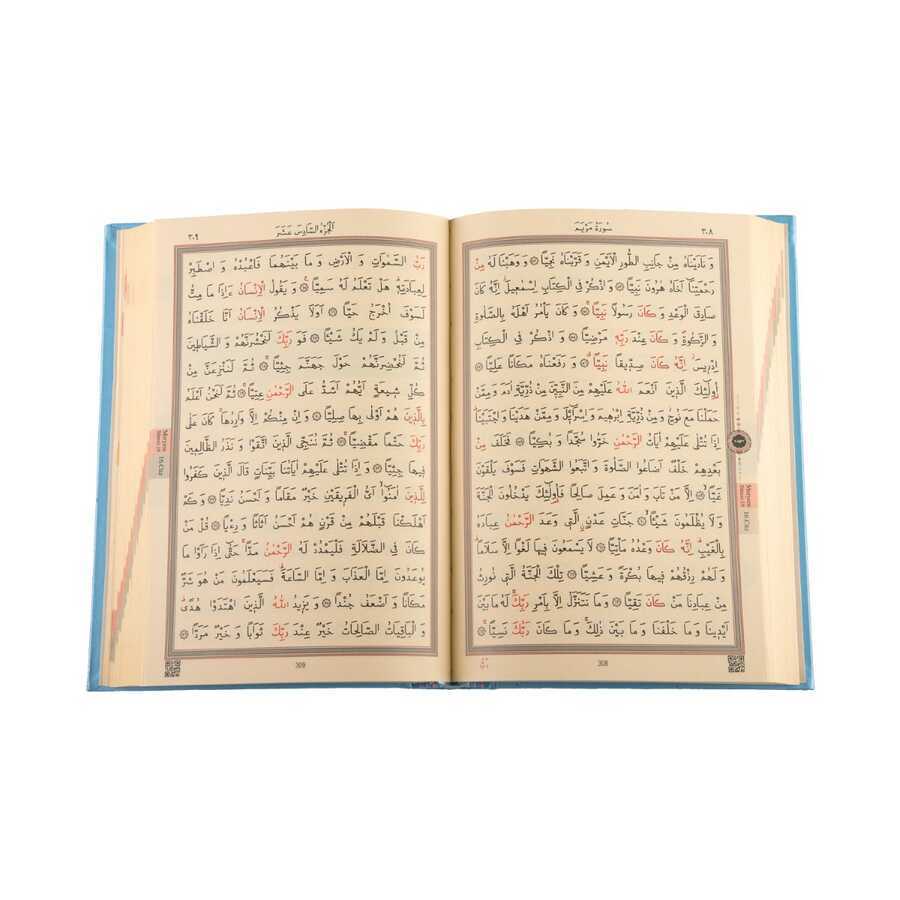 ٣٠٨
سُورَةُ مَرْيَمَ
وَنَادَيْنَاهُ مِنْ جَانِبِ الطُّورِ الْاَيْمَنِ وَقَرَّبْنَاهُ نَجِيًّا ﴿٥٢﴾ وَوَهَبْنَا لَهُ مِنْ
رَحْمَتِنَٓا اَخَاهُ هٰرُونَ نَبِيًّا ﴿٥٣﴾ وَاذْكُرْ فِي الْكِتَابِ اِسْمٰع۪يلَ اِنَّهُ كَانَ
صَادِقَ الْوَعْدِ وَكَانَ رَسُولًا نَبِيًّا ﴿٥٤﴾ وَكَانَ يَأْمُرُ اَهْلَهُ بِالصَّلٰوةِ
وَالزَّكٰوةِ وَكَانَ عِنْدَ رَبِّه۪ مَرْضِيًّا ﴿٥٥﴾ وَاذْكُرْ فِي الْكِتَابِ
اِدْر۪يسَ اِنَّهُ كَانَ صِدّ۪يقًا نَبِيًّا ﴿٥٦﴾ وَرَفَعْنَاهُ مَكَانًا عَلِيًّا ﴿٥٧﴾
اُو۬لٰٓئِكَ الَّذ۪ينَ اَنْعَمَ اللّٰهُ عَلَيْهِمْ مِنَ النَّبِيّ۪نَ مِنْ ذُرِّيَّةِ اٰدَمَ وَمِمَّنْ
حَمَلْنَا مَعَ نُوحٍ وَمِنْ ذُرِّيَّةِ اِبْرٰه۪يمَ وَاِسْرَٓائ۪لَ وَمِمَّنْ هَدَيْنَا وَاجْتَبَيْنَا
اِذَا تُتْلٰى عَلَيْهِمْ اٰيَاتُ الرَّحْمٰنِ خَرُّوا سُجَّدًا وَبُكِيًّا ﴿٥٨﴾ فَخَلَفَ مِنْ
بَعْدِهِمْ خَلْفٌ اَضَاعُوا الصَّلٰوةَ وَاتَّبَعُوا الشَّهَوَاتِ فَسَوْفَ يَلْقَوْنَ
غَيًّا ﴿٥٩﴾ اِلَّا مَنْ تَابَ وَاٰمَنَ وَعَمِلَ صَالِحًا فَاُو۬لٰٓئِكَ يَدْخُلُونَ الْجَنَّةَ
وَلَا يُظْلَمُونَ شَيْـًٔا ﴿٦٠﴾ جَنَّاتِ عَدْنٍ الَّت۪ي وَعَدَ الرَّحْمٰنُ عِبَادَهُ
بِالْغَيْبِ اِنَّهُ كَانَ وَعْدُهُ مَأْتِيًّا ﴿٦١﴾ لَا يَسْمَعُونَ ف۪يهَا لَغْوًا اِلَّا سَلَامًا
وَلَهُمْ رِزْقُهُمْ ف۪يهَا بُكْرَةً وَعَشِيًّا ﴿٦٢﴾ تِلْكَ الْجَنَّةُ الَّت۪ي نُورِثُ
مِنْ عِبَادِنَا مَنْ كَانَ تَقِيًّا ﴿٦٣﴾ وَمَا نَتَنَزَّلُ اِلَّا بِاَمْرِ رَبِّكَ لَهُ مَا بَيْنَ
اَيْد۪ينَا وَمَا خَلْفَنَا وَمَا بَيْنَ ذٰلِكَ وَمَا كَانَ رَبُّكَ نَسِيًّا ﴿٦٤﴾
رَبُّ
308
Meryem
Sûresi 19
16.Cüz
٣٠٩
اَلْجُزْءُ السَّادِسَ عَشَرَ
رَبُّ السَّمٰوَاتِ وَالْاَرْضِ وَمَا بَيْنَهُمَا فَاعْبُدْهُ وَاصْطَبِرْ
لِعِبَادَتِه۪ هَلْ تَعْلَمُ لَهُ سَمِيًّا ﴿٦٥﴾ وَيَقُولُ الْاِنْسَانُ ءَاِذَا مَا مِتُّ
لَسَوْفَ اُخْرَجُ حَيًّا ﴿٦٦﴾ اَوَلَا يَذْكُرُ الْاِنْسَانُ اَنَّا خَلَقْنَاهُ
مِنْ قَبْلُ وَلَمْ يَكُ شَيْـًٔا ﴿٦٧﴾ فَوَرَبِّكَ لَنَحْشُرَنَّهُمْ وَالشَّيَاط۪ينَ
ثُمَّ لَنُحْضِرَنَّهُمْ حَوْلَ جَهَنَّمَ جِثِيًّا ﴿٦٨﴾ ثُمَّ لَنَنْزِعَنَّ مِنْ
كُلِّ ش۪يعَةٍ اَيُّهُمْ اَشَدُّ عَلَى الرَّحْمٰنِ عِتِيًّا ﴿٦٩﴾ ثُمَّ لَنَحْنُ اَعْلَمُ
بِالَّذ۪ينَ هُمْ اَوْلٰى بِهَا صِلِيًّا ﴿٧٠﴾ وَاِنْ مِنْكُمْ اِلَّا وَارِدُهَا كَانَ عَلٰى
رَبِّكَ حَتْمًا مَقْضِيًّا ﴿٧١﴾ ثُمَّ نُنَجِّي الَّذ۪ينَ اتَّقَوْا وَنَذَرُ الظَّالِم۪ينَ
ف۪يهَا جِثِيًّا ﴿٧٢﴾ وَاِذَا تُتْلٰى عَلَيْهِمْ اٰيَاتُنَا بَيِّنَاتٍ قَالَ الَّذ۪ينَ كَفَرُوا
لِلَّذ۪ينَ اٰمَنُٓوا اَيُّ الْفَر۪يقَيْنِ خَيْرٌ مَقَامًا وَاَحْسَنُ نَدِيًّا ﴿٧٣﴾ وَكَمْ
اَهْلَكْنَا قَبْلَهُمْ مِنْ قَرْنٍ هُمْ اَحْسَنُ اَثَاثًا وَرِءْيًا ﴿٧٤﴾ قُلْ مَنْ
كَانَ فِي الضَّلَالَةِ فَلْيَمْدُدْ لَهُ الرَّحْمٰنُ مَدًّا حَتّٰٓى اِذَا رَاَوْا مَا
يُوعَدُونَ اِمَّا الْعَذَابَ وَاِمَّا السَّاعَةَ فَسَيَعْلَمُونَ مَنْ هُوَ شَرٌّ
مَكَانًا وَاَضْعَفُ جُنْدًا ﴿٧٥﴾ وَيَز۪يدُ اللّٰهُ الَّذ۪ينَ اهْتَدَوْا هُدًى
وَالْبَاقِيَاتُ الصَّالِحَاتُ خَيْرٌ عِنْدَ رَبِّكَ ثَوَابًا وَخَيْرٌ مَرَدًّا ﴿٧٦﴾
309
Meryem
Sûresi 19
16.Cüz